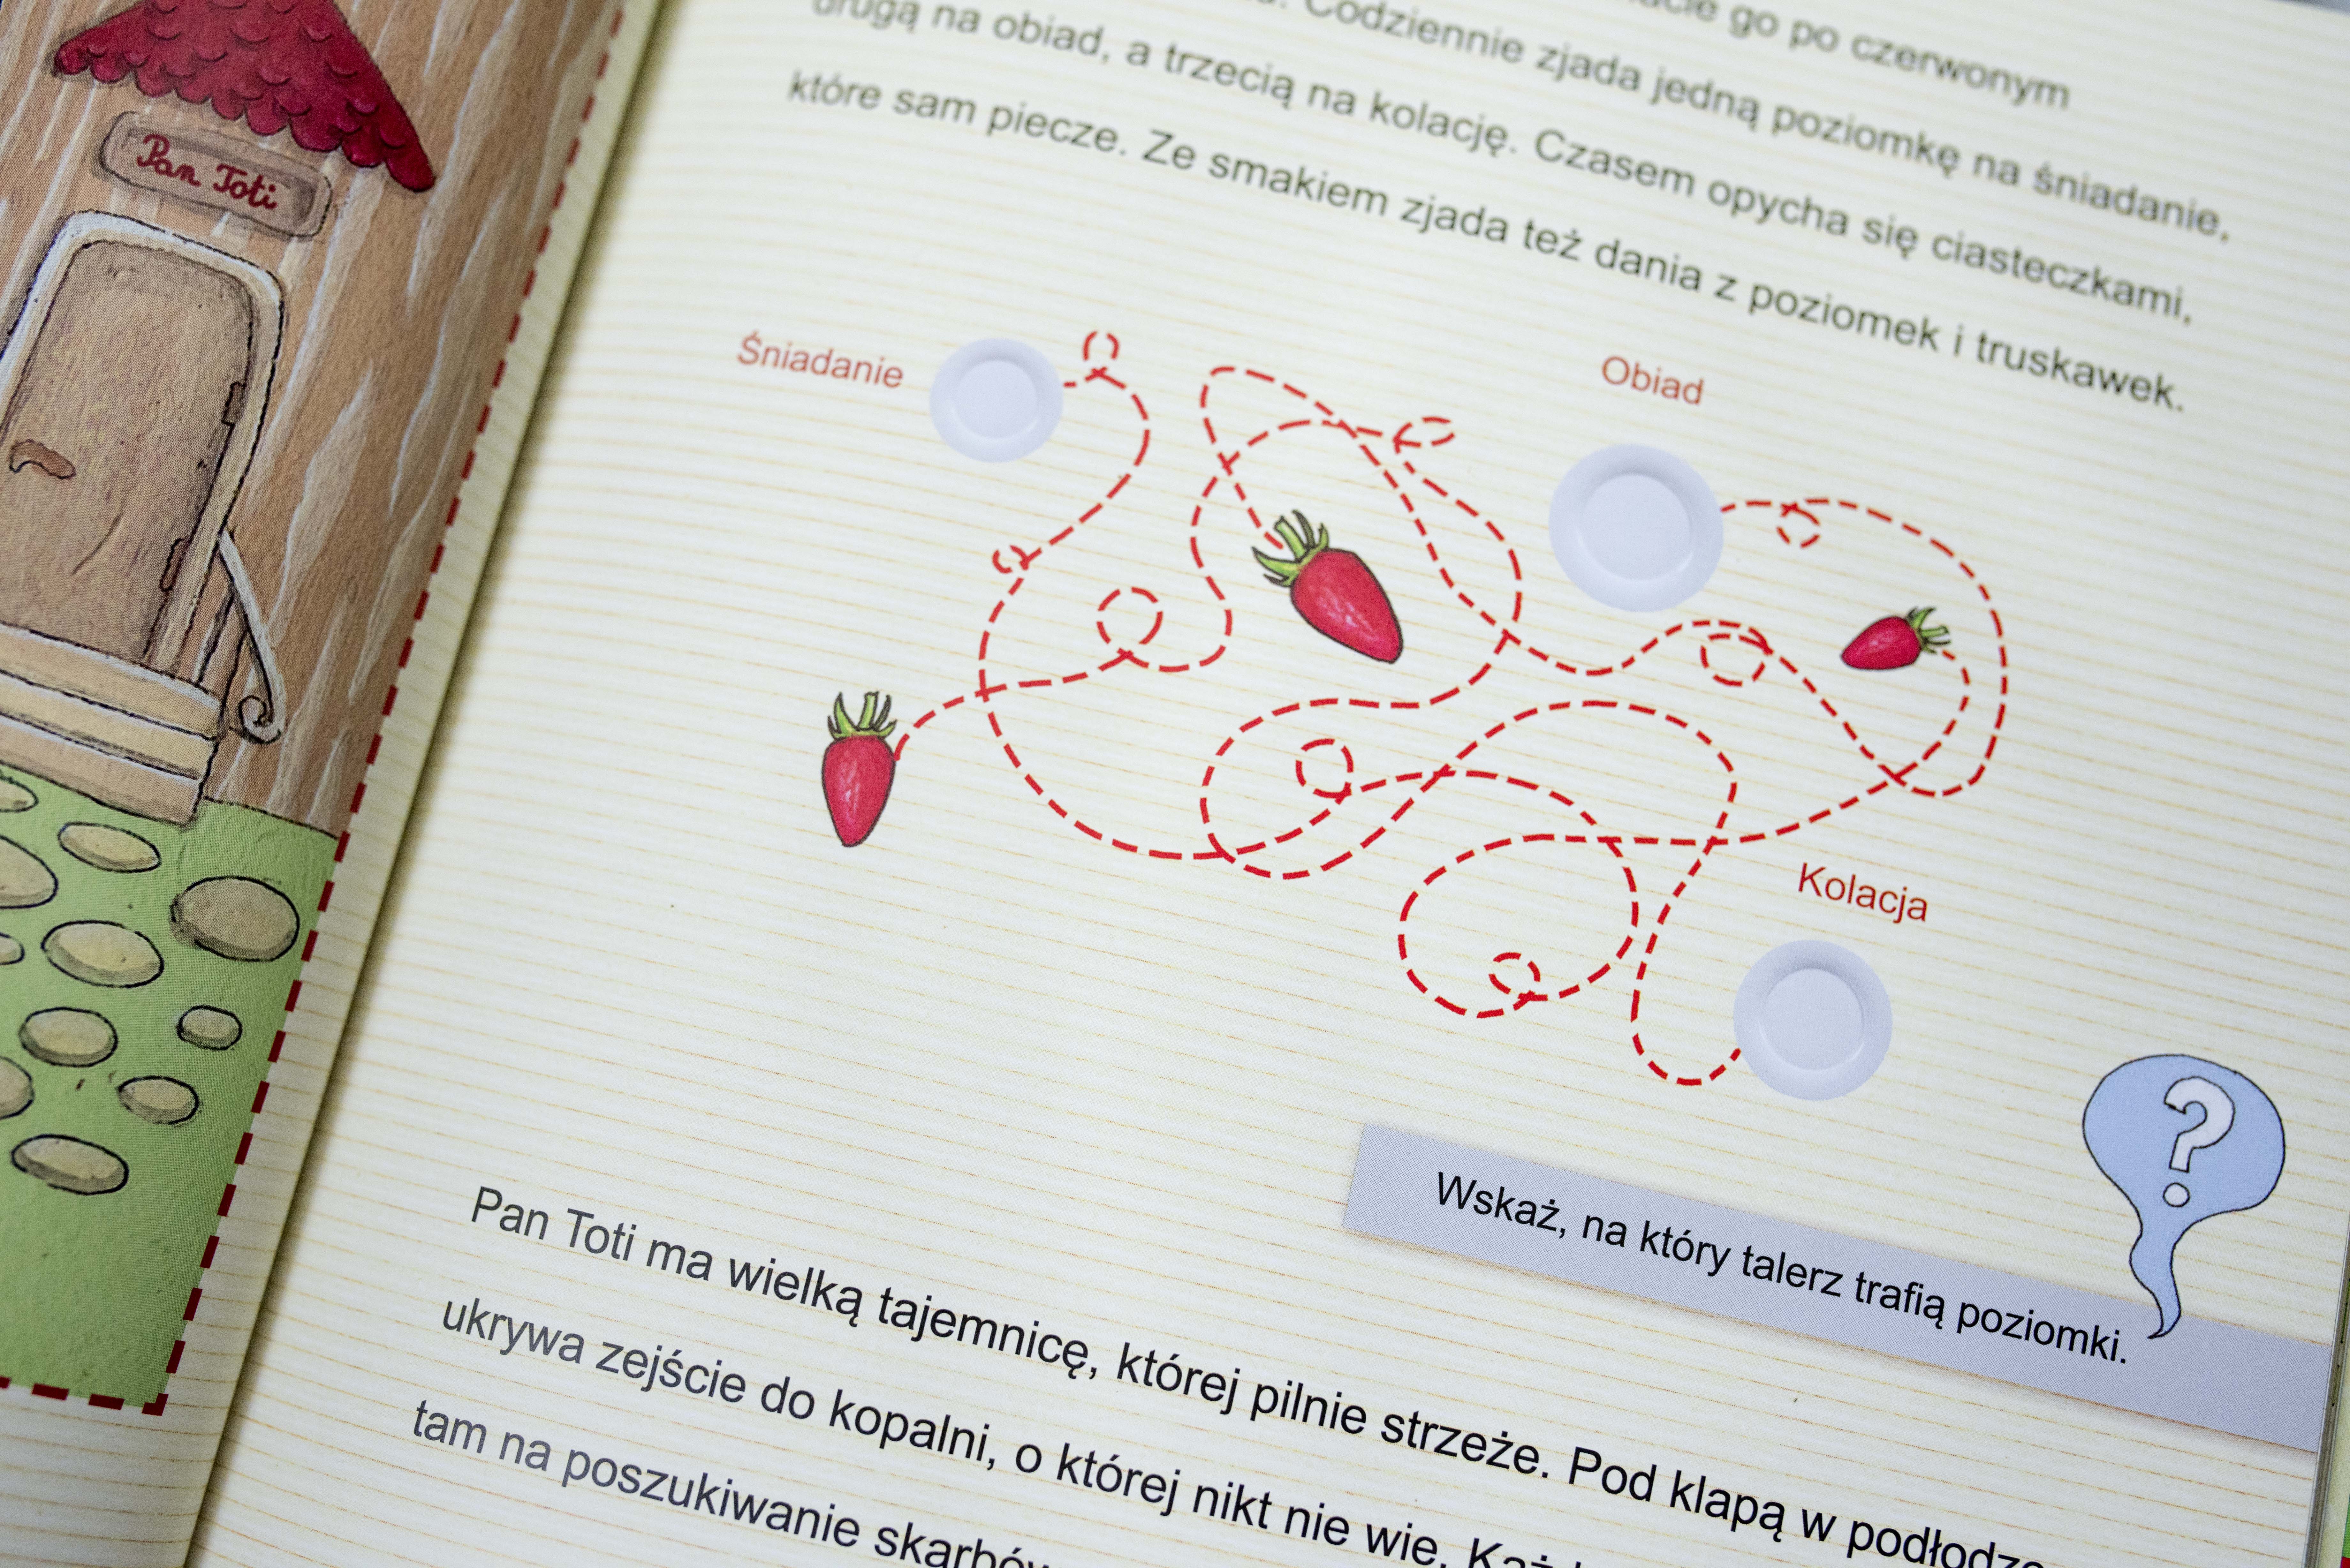 Pan Toti
go po czerwonym
Codziennie zjada jedną poziomkę na śniadanie,
drugą na obiad, a trzecią na kolację. Czasem opycha się ciasteczkami,
które sam piecze. Ze smakiem zjada też dania z poziomek i truskawek.
Śniadanie
Obiad
Kolacja
?
Wskaż, na który talerz trafią poziomki.
Pan Toti ma wielką tajemnicę, której pilnie strzeże. Pod klapą w podłodze
ukrywa zejście do kopalni, o której nikt nie wie.
tam na poszukiwanie skarbów